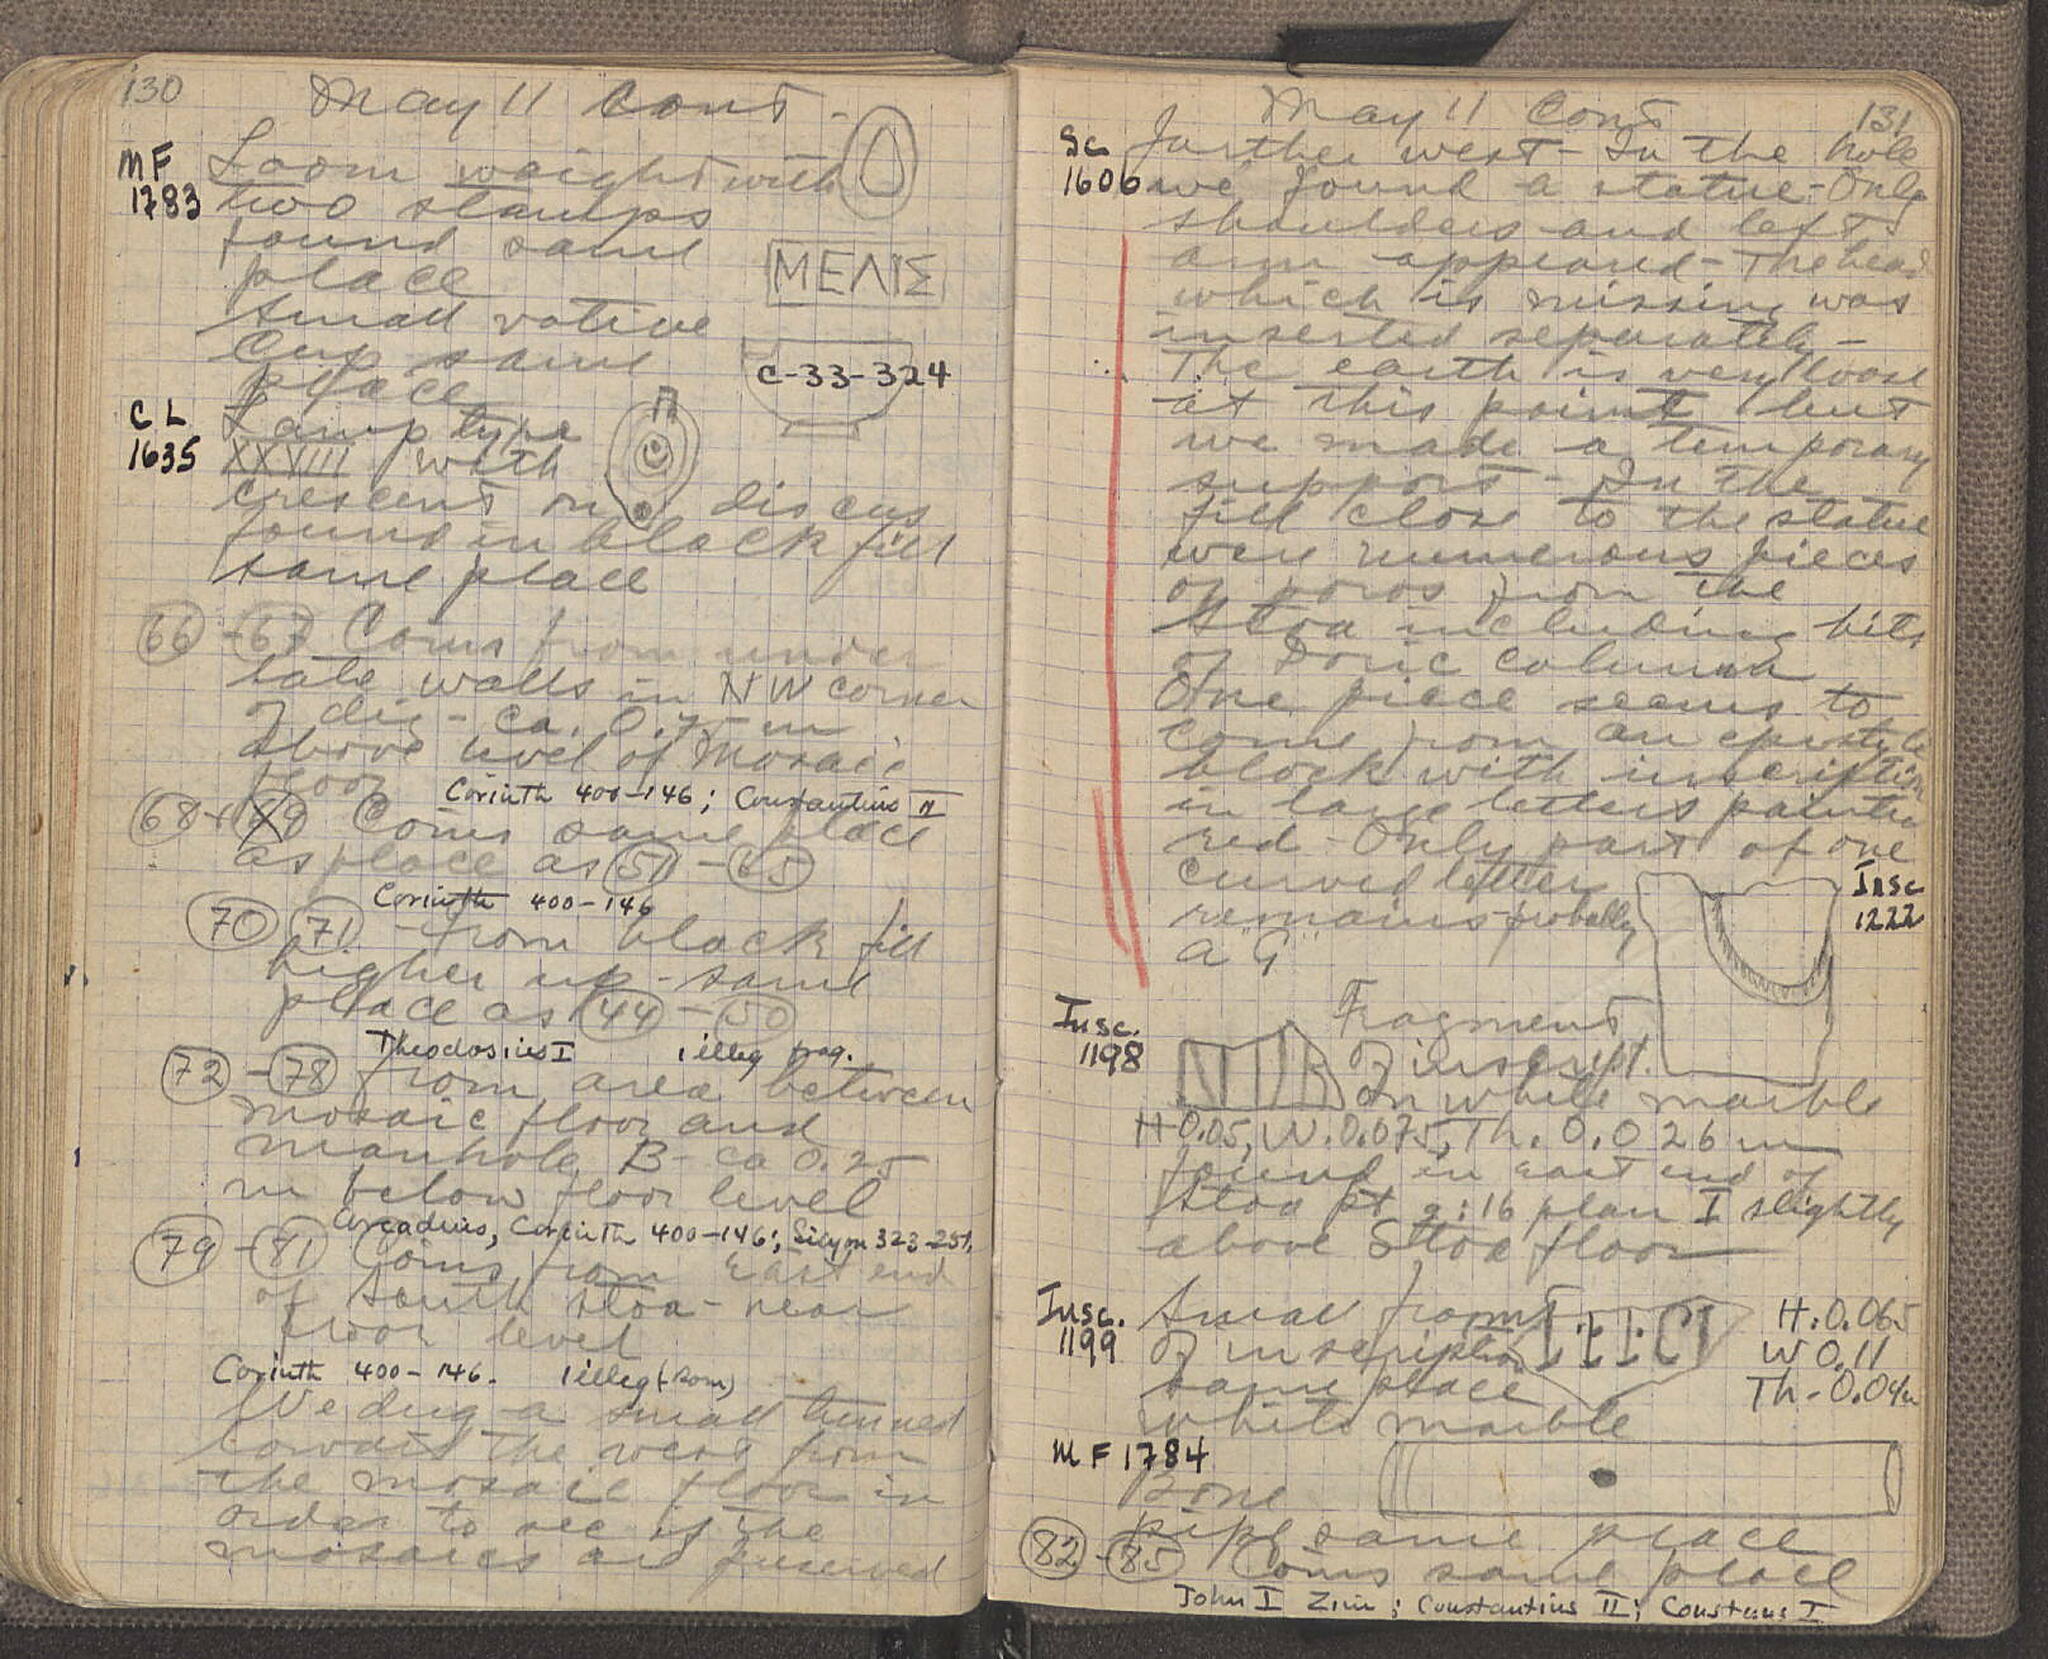 130
May 11 Cont -
MF
1783
Loom weight with
two stamps
found same
place
ΜΕΛΙΣ
Small votive
cup same
place
C-33-324
CL
1635
Lamp type
XXVIII with
crescent on discus
found in black fill
same place
66 - 67 Coins from under
late walls in NW corner
of dig - ca. 0.75 m
above level of Mosaic
floor
Corinth 400-146; Constantius II
68 + 69 Coins same place
as place as 51 - 65
Corinth 400-146
70 71 - from black fill
higher up - same
place as 44 - 50
Theodosius I 1 illeg frag.
72 - 78 from area between
mosaic floor and
manhole B - ca 0.25
m below floor level
Arcadius, Corinth 400-146; Sicyon 323-251,
79 - 81 Coins from East end
of South Stoa - near
floor level
Corinth 400-146. 1 illeg (Rom)
We dug a small tunnel
towards the west from
the mosaic floor in
order to see if the
mosaics are preserved
May 11 Cont
131
Sc
1606
further west - In the hole
we found a statue - Only
shoulders and left
arm appeared - The head
which is missing was
inserted separately -
The earth is very loose
at this point but
we made a temporary
support - In the
fill close to the statue
were numerous pieces
of poros from the
Stoa including bits
of Doric column
One piece seems to
come from an epistyle
block with inscription
in large letters painted
red - Only part of one
curved letter
remains probably
a "G"
Insc
1222
Insc.
1198
Fragment
of inscript.
In white marble
H 0.05, W. 0.075, Th. 0.026 m
found in East end of
Stoa pt 2:16 plan I slightly
above Stoa floor
Insc.
1199
Small fragmt
of inscription
same place
white marble
H: 0.065
W 0.11
Th - 0.04m
MF 1784
Bone
pipe same place
82 - 85 Coins same place
John I Zim; Constantius II; Constans I